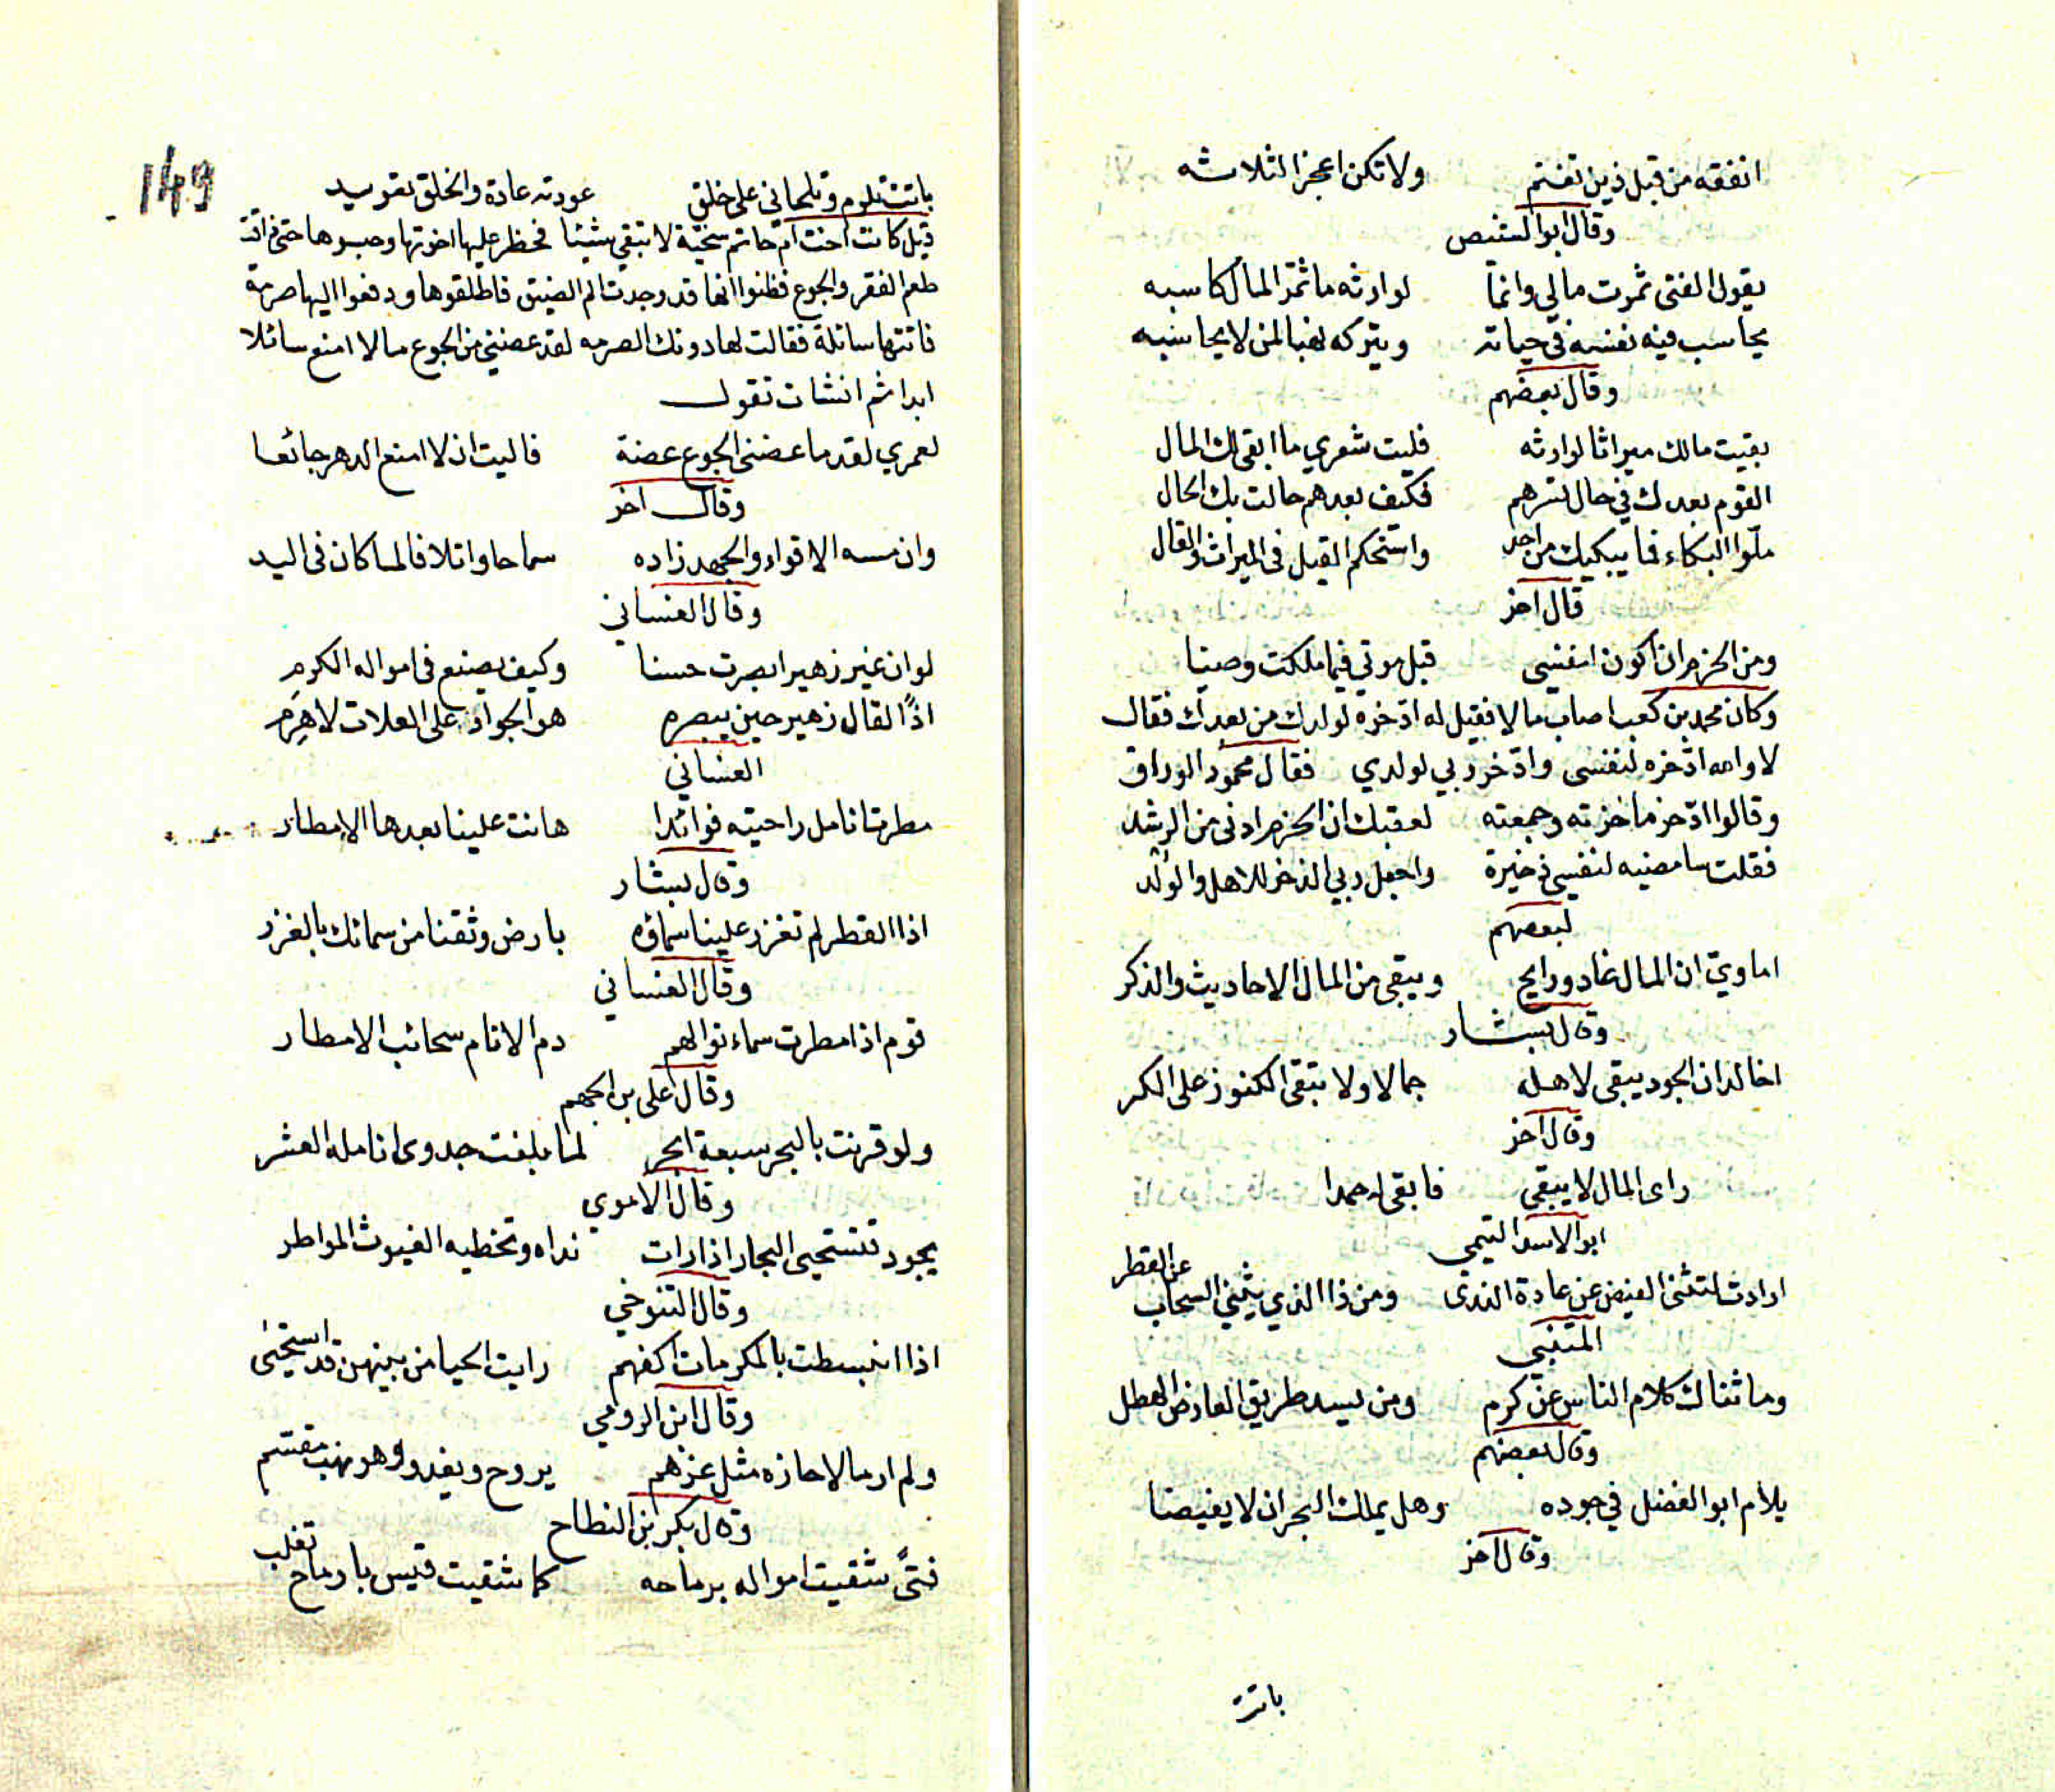 انفقه من قبل ذين تغنم ولا تكن اعجز الثلاثه
وقال ابو الشيص
يقول الفتى ثمرت مالي وانما لوارثه ما ثمّر المال كاسبه
يحاسب فيه نفسه في حياته ويتركه نهبا لمن لا يحاسبه
وقال بعضهم
بقيت مالك ميراثا لوارثه فليت شعري ما ابقى لك المال
القوم بعدك في حال تسرهم فكيف بعدهم حالت بك الحال
ملّوا البكاء فما يبكيك من احد واستحكم القيل في الميراث والقال
قال اخر
ومن الحزم ان اكون لنفسي قبل موتي فيما ملكت وصيا
وكان محمد بن كعب اصاب مالا فقيل له ادّخره لولدك من بعدك فقال
لا والله ادّخره لنفسي وادّخر ربي لولدي فقال محمود الوراق
وقالوا ادّخر ما حزته وجمعته لعقبك ان الحزم ادنى من الرشد
فقلت سامضيه لنفسي ذخيرة واجعل ربي الذخر للاهل والولد
لبعضهم
اماويّ ان المال غاد ورايح ويبقى من المال الاحاديث والذكر
وقال بشار
اخالد ان الجود يبقى لاهله جمالا ولا تبقى الكنوز على الكر
وقال اخر
راى المال لا يبقى فابقى له حمدا
ابو الاسد التيمي
ارادت لتثنى الفيض عن عادة الندى ومن ذا الذي يثني السحاب عن القطر
المتنبي
وما ثناك كلام الناس عن كرم ومن يسد طريق العارض الهطل
وقال بعضهم
يلام ابو الفضل في جوده وهل يملك البحر ان لا يفيضا
وقال اخر
باتت
149
باتت تلوم وتلحاني على خلق عودته عادة والخلق تعويد
قيل كانت اخت امّ حاتم سخيّة لا تبقي شيئا فحظر عليها اخوتها وحبسوها حتى ذاقت
طعم الفقر والجوع فظنوا انها قد وجدت الم الضيق فاطلقوها ودفعوا اليها صرمة
فاتتها سائلة فقالت لها دونك الصرمه لقد عضني من الجوع ما لا امنع سائلا
ابدا ثم انشات تقول
لعمري لقدما عضني الجوع عضة فاليت ان لا امنع الدهر جائعا
وقال اخر
وان مسه الاقواء والجهد زاده سماحا واتلافا لما كان في اليد
وقال الغساني
لو ان غير زهير ابصرت حسنا وكيف يصنع في امواله الكرم
اذًا لقال زهير حين يبصره هو الجواد على العلات لا هرم
الغساني
مطرتنا نامل راحتيه فوائدا هانت علينا بعدها الامطار
وقال بشار
اذا القطر لم تغزر علينا سماؤه بارض وثقنا من سمائك بالغزر
وقال الغساني
قوم اذا مطرت سماء نوالهم ذم الانام سحائب الامطار
وقال على بن الجهم
ولو قرنت بالبحر سبعة ابحر لما بلغت جدوى انامله العشر
وقال الاموي
يجود تستحيى البحار اذا رات نداه وتخطيه الغيوث المواطر
وقال التنوخي
اذا انبسطت بالمكرمات اكفهم رايت الحيا من بينهن قد استحيى
وقال ابن الرومي
ولم ار مالا حازه مثل عزهم يروح ويغدو وهو نهب مقسم
وقال بكر بن النطاح
فتىً شقيت امواله برماحه كما شقيت قيس بارماح تغلب